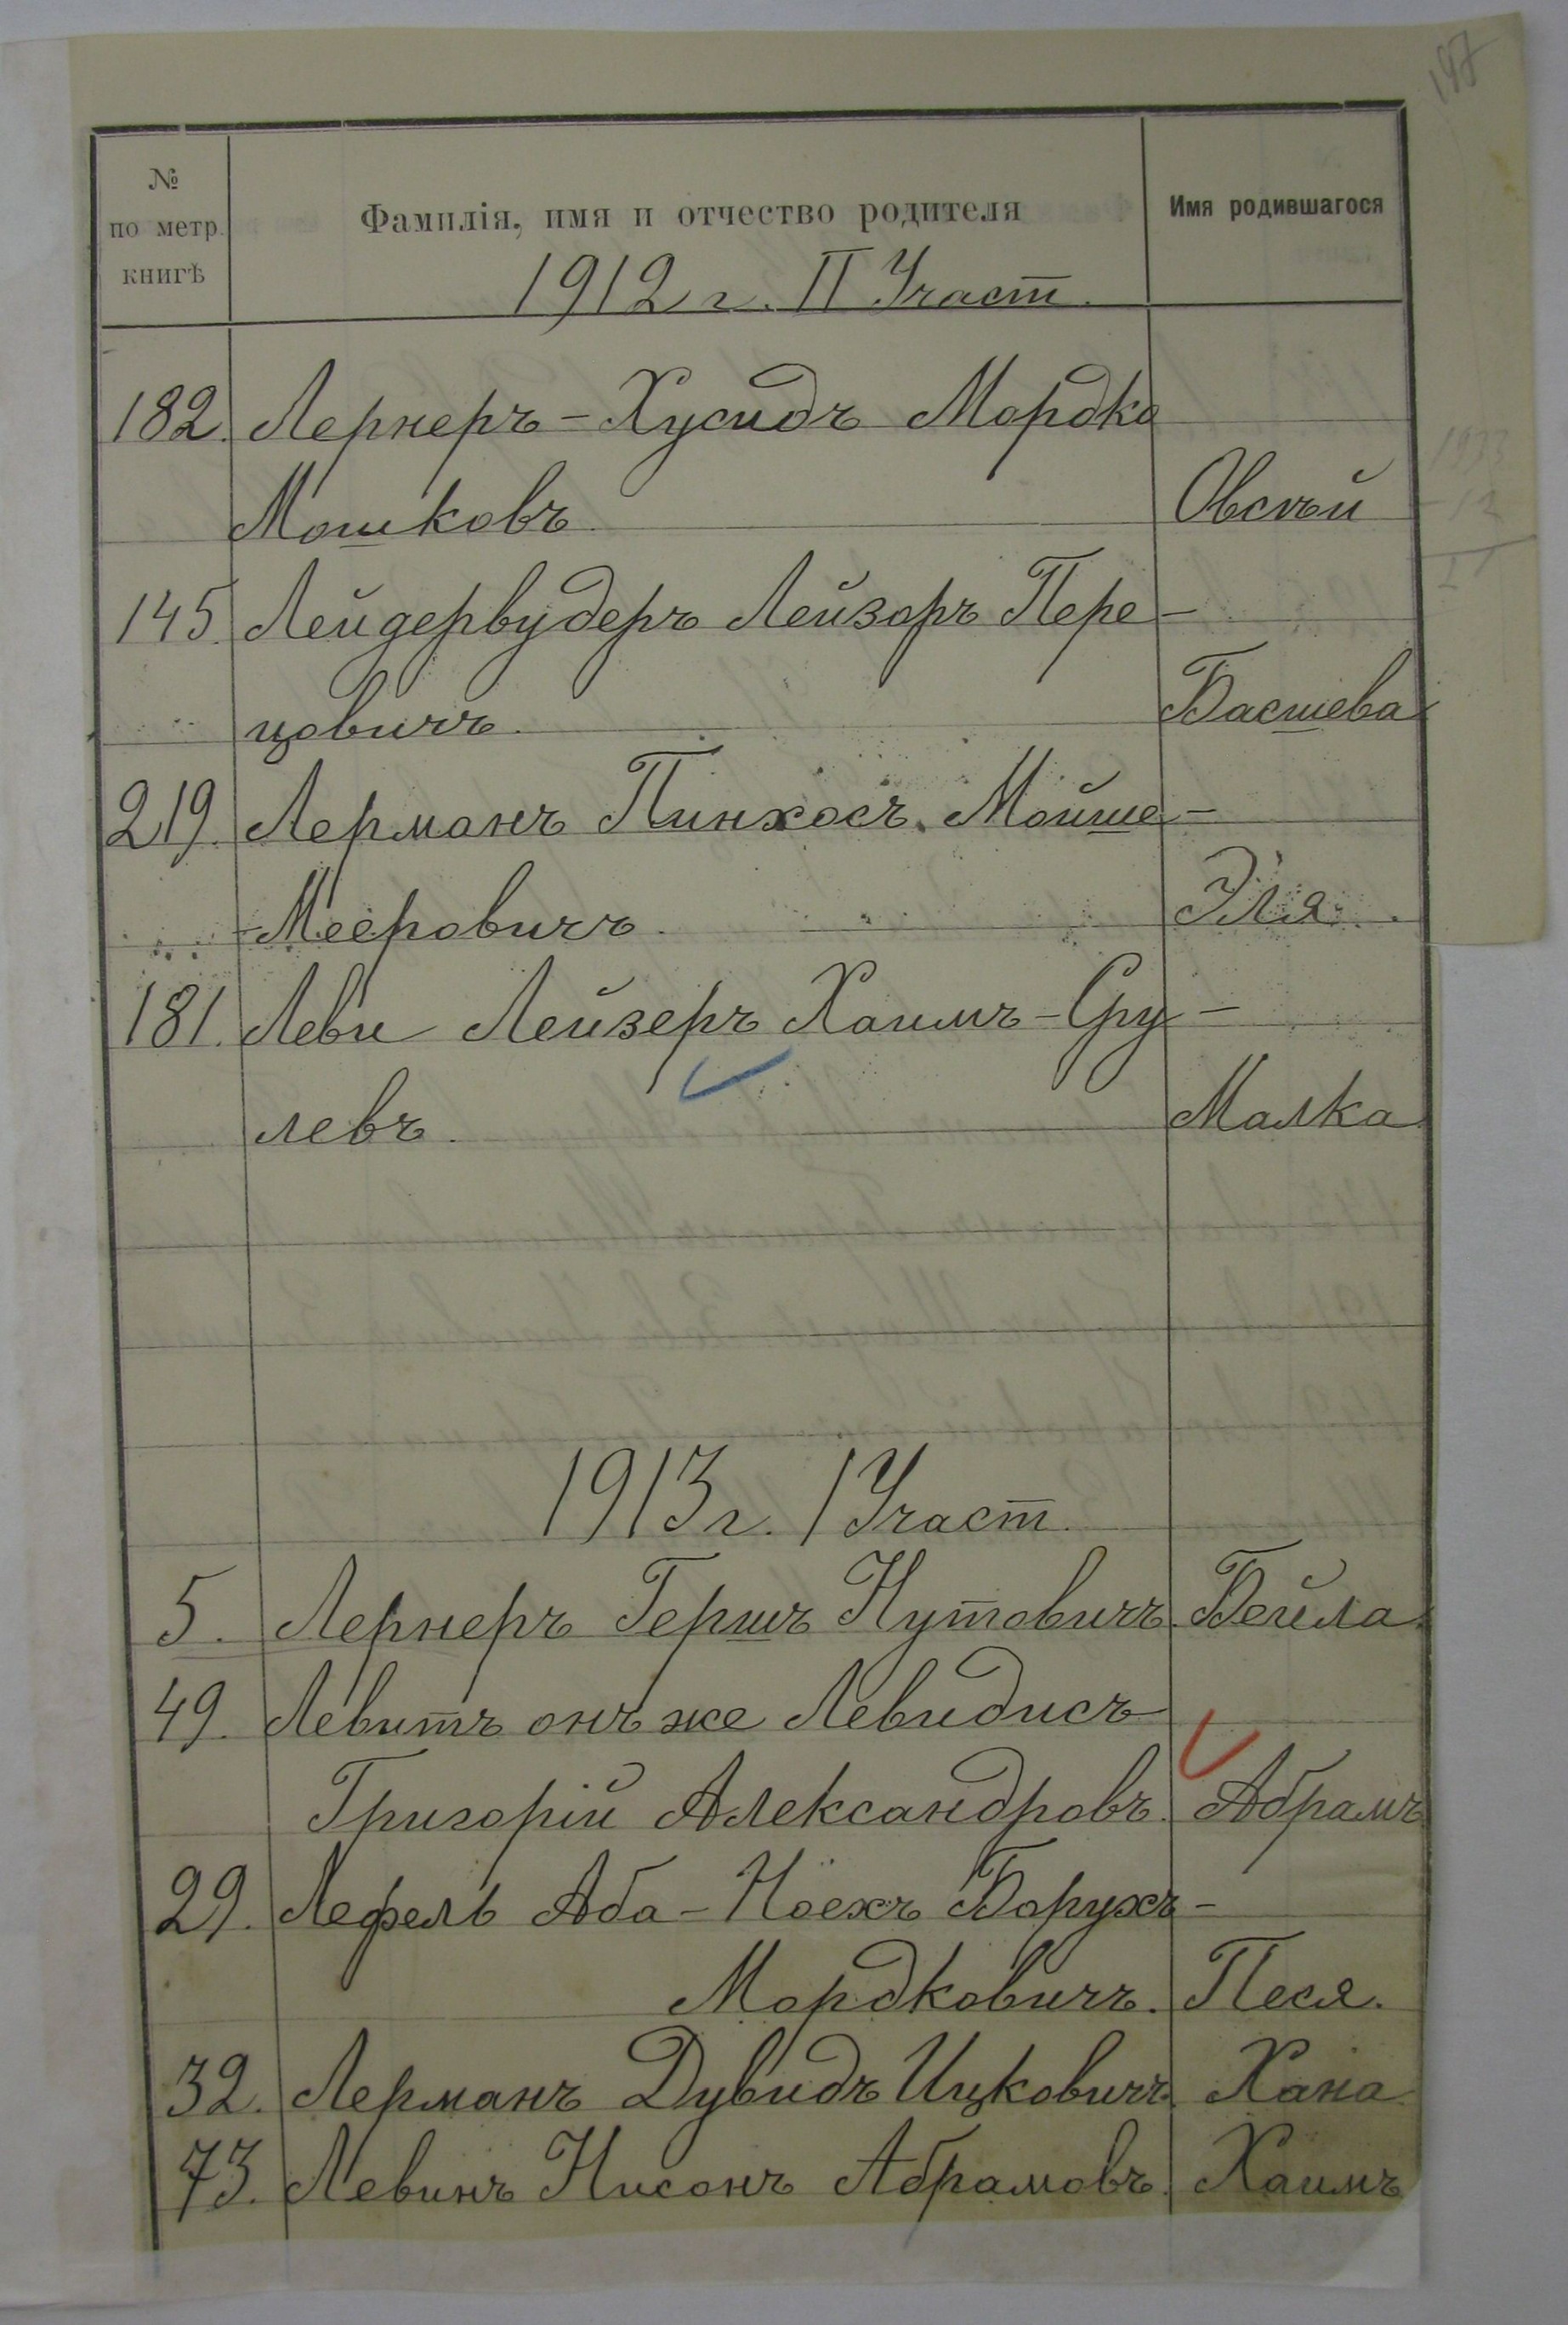 197
№
по метр.
книгѣ
Фамилія, имя и отчество родителя
Имя родившагося
1912 г. II Участ.
182. Лернеръ-Хусидъ Мордко
Мошковъ. Овсѣй
145. Лейдервудеръ Лейзоръ Пере-
цовичъ. Басшева
219. Лерманъ Пинхосъ Мойше-
-Мееровичъ. Эля.
181. Леви Лейзеръ Хаимъ-Сру-
левъ. Малка
1913 г. I Участ.
5. Лернеръ Гершъ Нутовичъ. Бейла.
49. Левитъ онъ же Левидисъ
Григорій Александровъ. Абрамъ
29. Лефель Аба-Ноехъ Борухъ-
Мордковичъ. Песя.
32. Лерманъ Дувидъ Ицковичъ. Хана
73. Левинъ Нисонъ Абрамовъ. Хаимъ